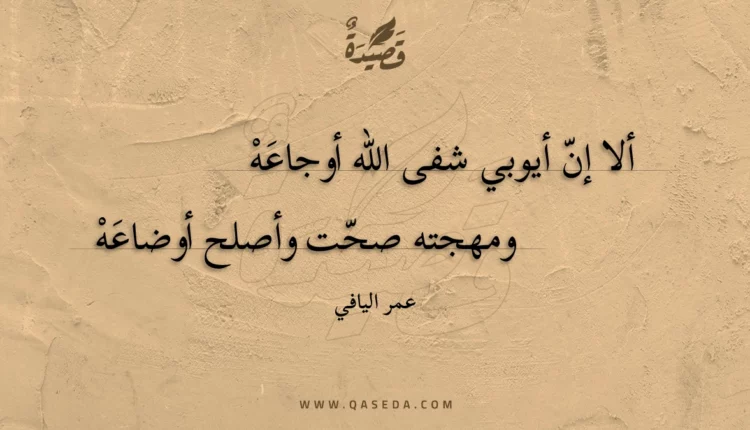 قَصِيْدَةٌ
ألا إنّ أيوبي شفى الله أوجاعَهْ
ومهجته صحّت وأصلح أوضاعَهْ
عمر اليافي
WWW.QASEDA.COM